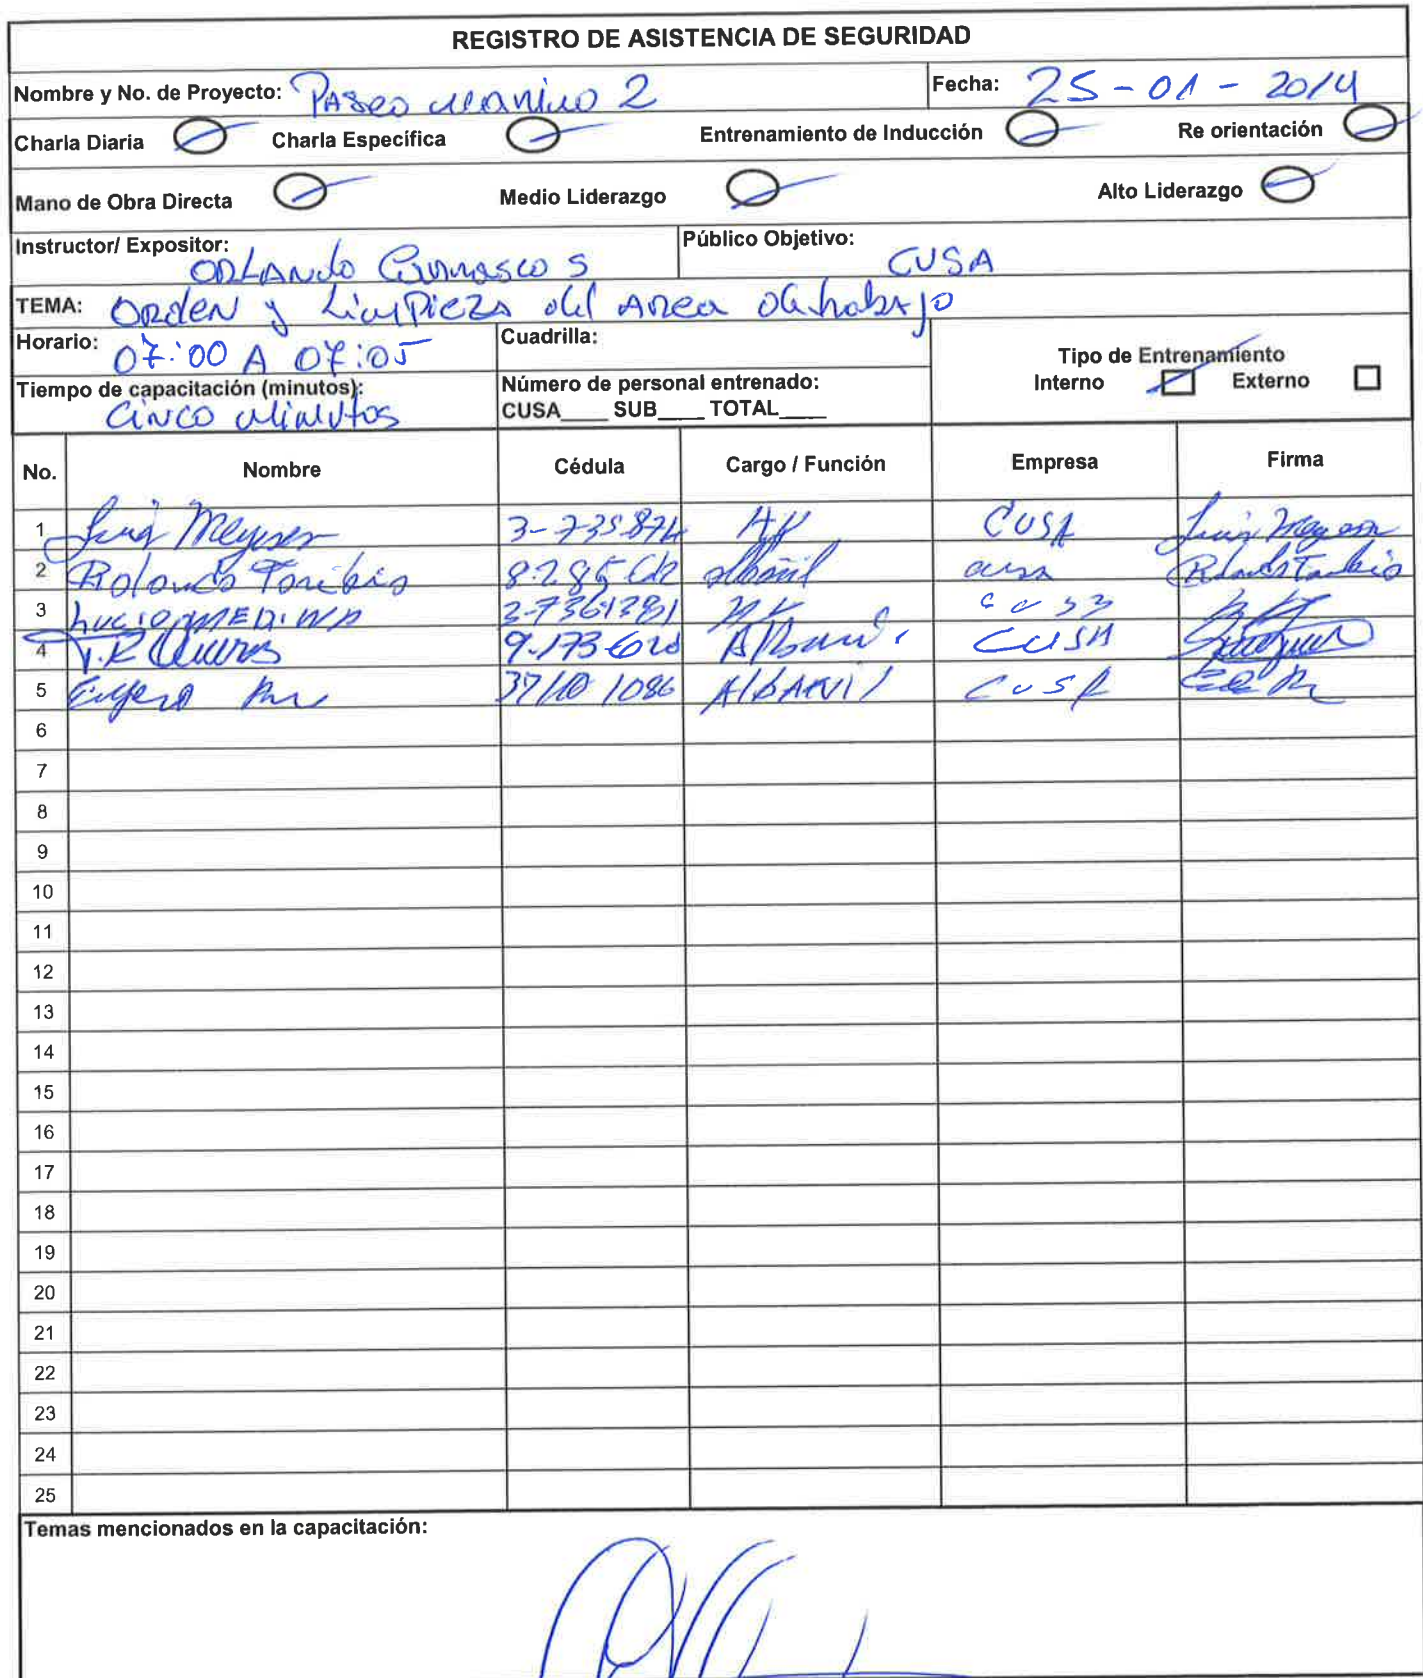 REGISTRO DE ASISTENCIA DE SEGURIDAD
Nombre y No. de Proyecto: Paseo marino 2 Fecha: 25-01-2014
Charla Diaria Charla Específica Entrenamiento de Inducción Re orientación
Mano de Obra Directa Medio Liderazgo Alto Liderazgo
Instructor/ Expositor: ORLANdo S Público Objetivo: CUSA
TEMA: Orden y Limpieza del Area de trabajo
Horario: 07:00 A 07:05 Cuadrilla: Tipo de Entrenamiento
Tiempo de capacitación (minutos): Cinco minutos Número de personal entrenado: Interno Externo
CUSA____ SUB____ TOTAL____
No. Nombre Cédula Cargo / Función Empresa Firma
1 Luis 3-735-874 CUSA Luis
2 Rolando Toribio albañil cusa
3 Lucio MEDINA
4 CUSA
5 ALbAÑil CUSA
6
7
8
9
10
11
12
13
14
15
16
17
18
19
20
21
22
23
24
25
Temas mencionados en la capacitación: